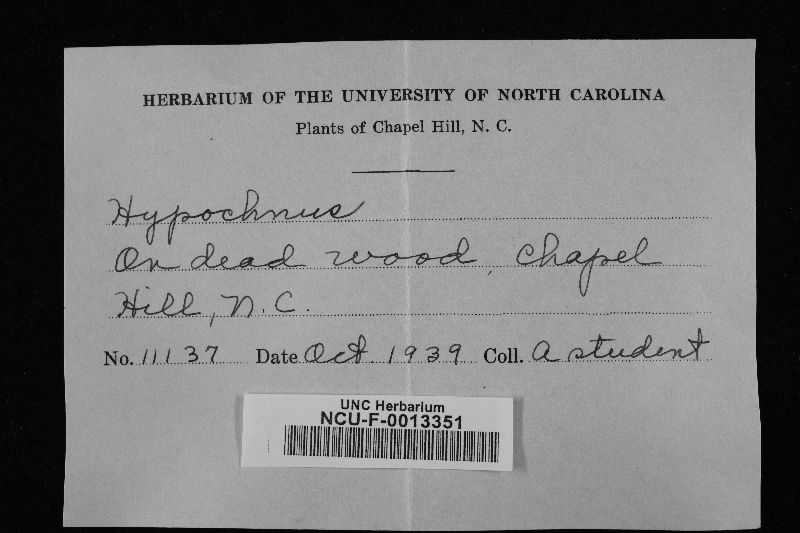 HERBARIUM OF THE UNIVERSITY OF NORTH CAROLINA
Plants of Chapel Hill, N. C.
Hypochnus
On dead wood, Chapel
Hill, N.C.
No. 11137 Date Oct. 1939 Coll. A student
UNC Herbarium
NCU-F-0013351